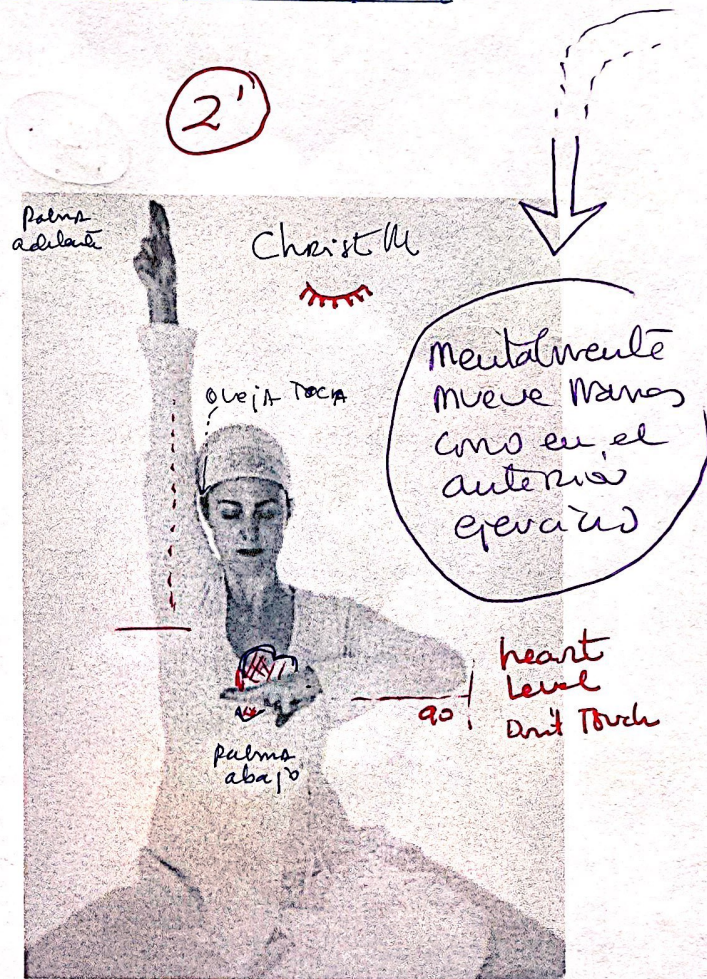 2'
Palma
adelante
Christ M
oveja TOCA
Mentalmente
mueve Manos
como en el
anterior
ejercicio
heart
Level
Don't Touch
90
palma
abajo